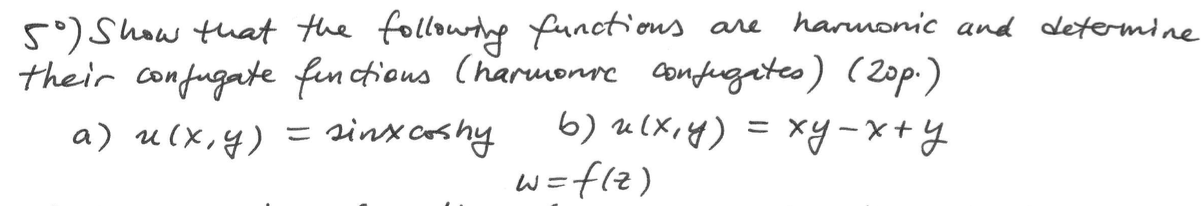 5°) Show that the following functions are harmonic and determine
their conjugate functions (harmonic conjugates) (20p.)
a) u(x,y) = sinx coshy b) u(x,y) = xy-x+y
w=f(z)